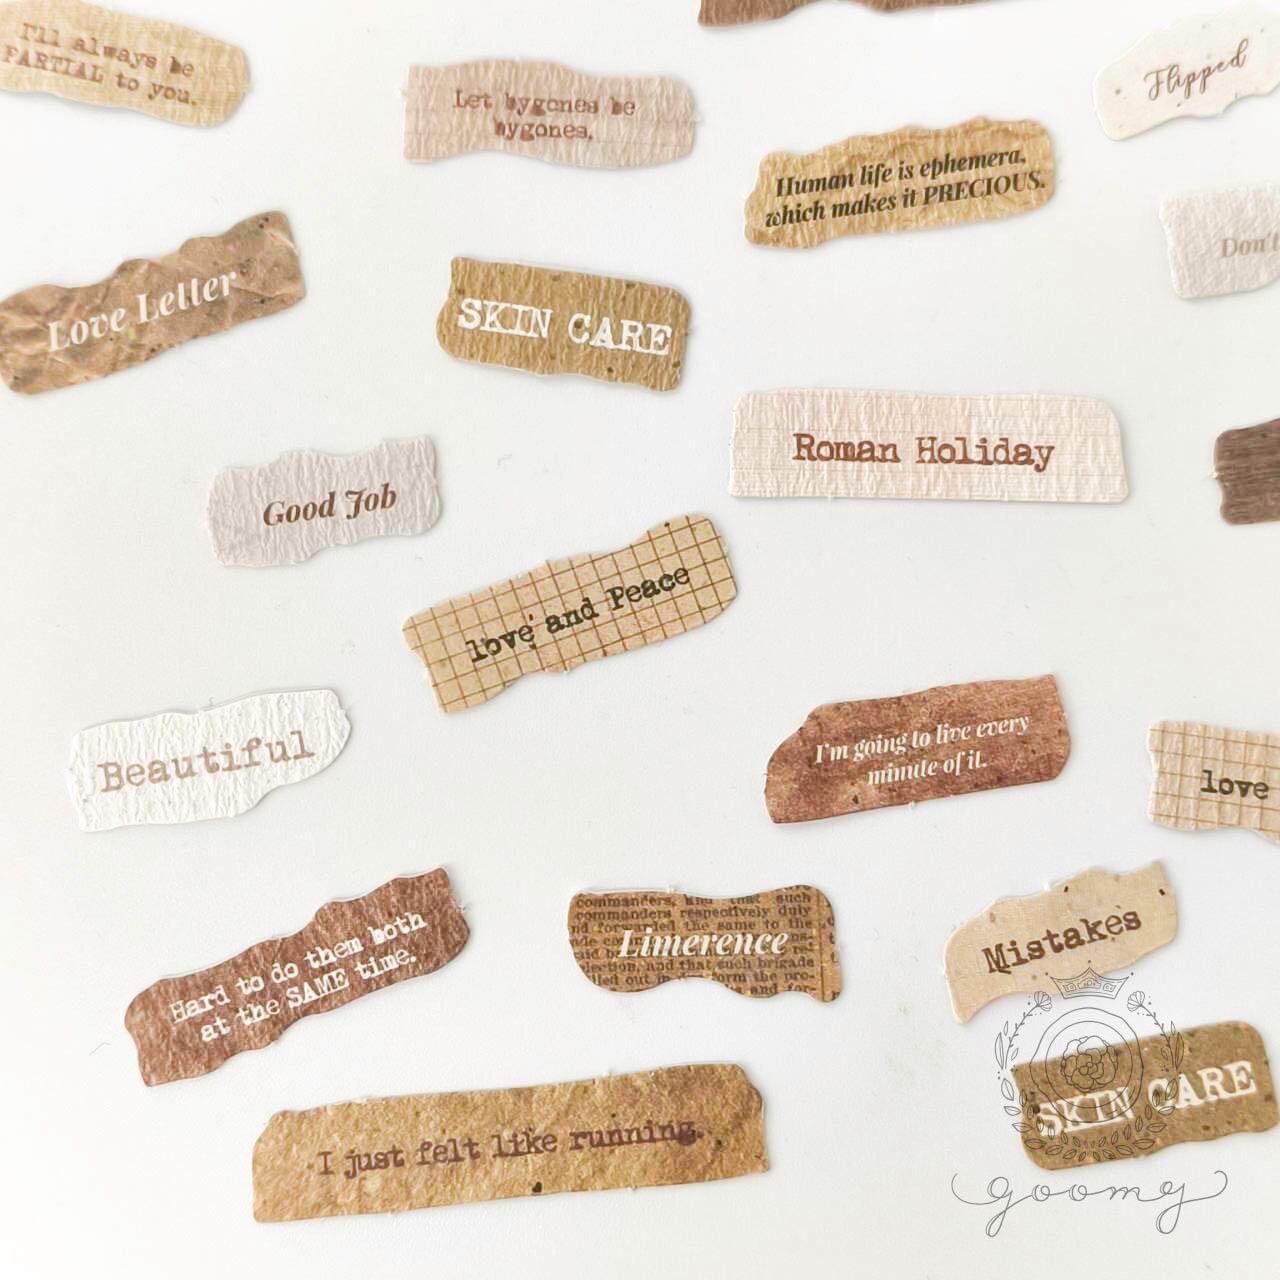 I'll always be
PARTIAL to you.
Let bygones be
bygones.
Flipped
Human life is ephemera,
which makes it PRECIOUS.
Don't
Love Letter
SKIN CARE
Roman Holiday
Good Job
love and Peace
Beautiful
I'm going to live every
minute of it.
love
Hard to do them both
at the SAME time.
commanders, and that such
commanders respectively duly
nd forwarded the same to the
Limerence
lection, and that such brigade
lled out in form the pro-
and for-
Mistakes
SKIN CARE
I just felt like running.
goomg